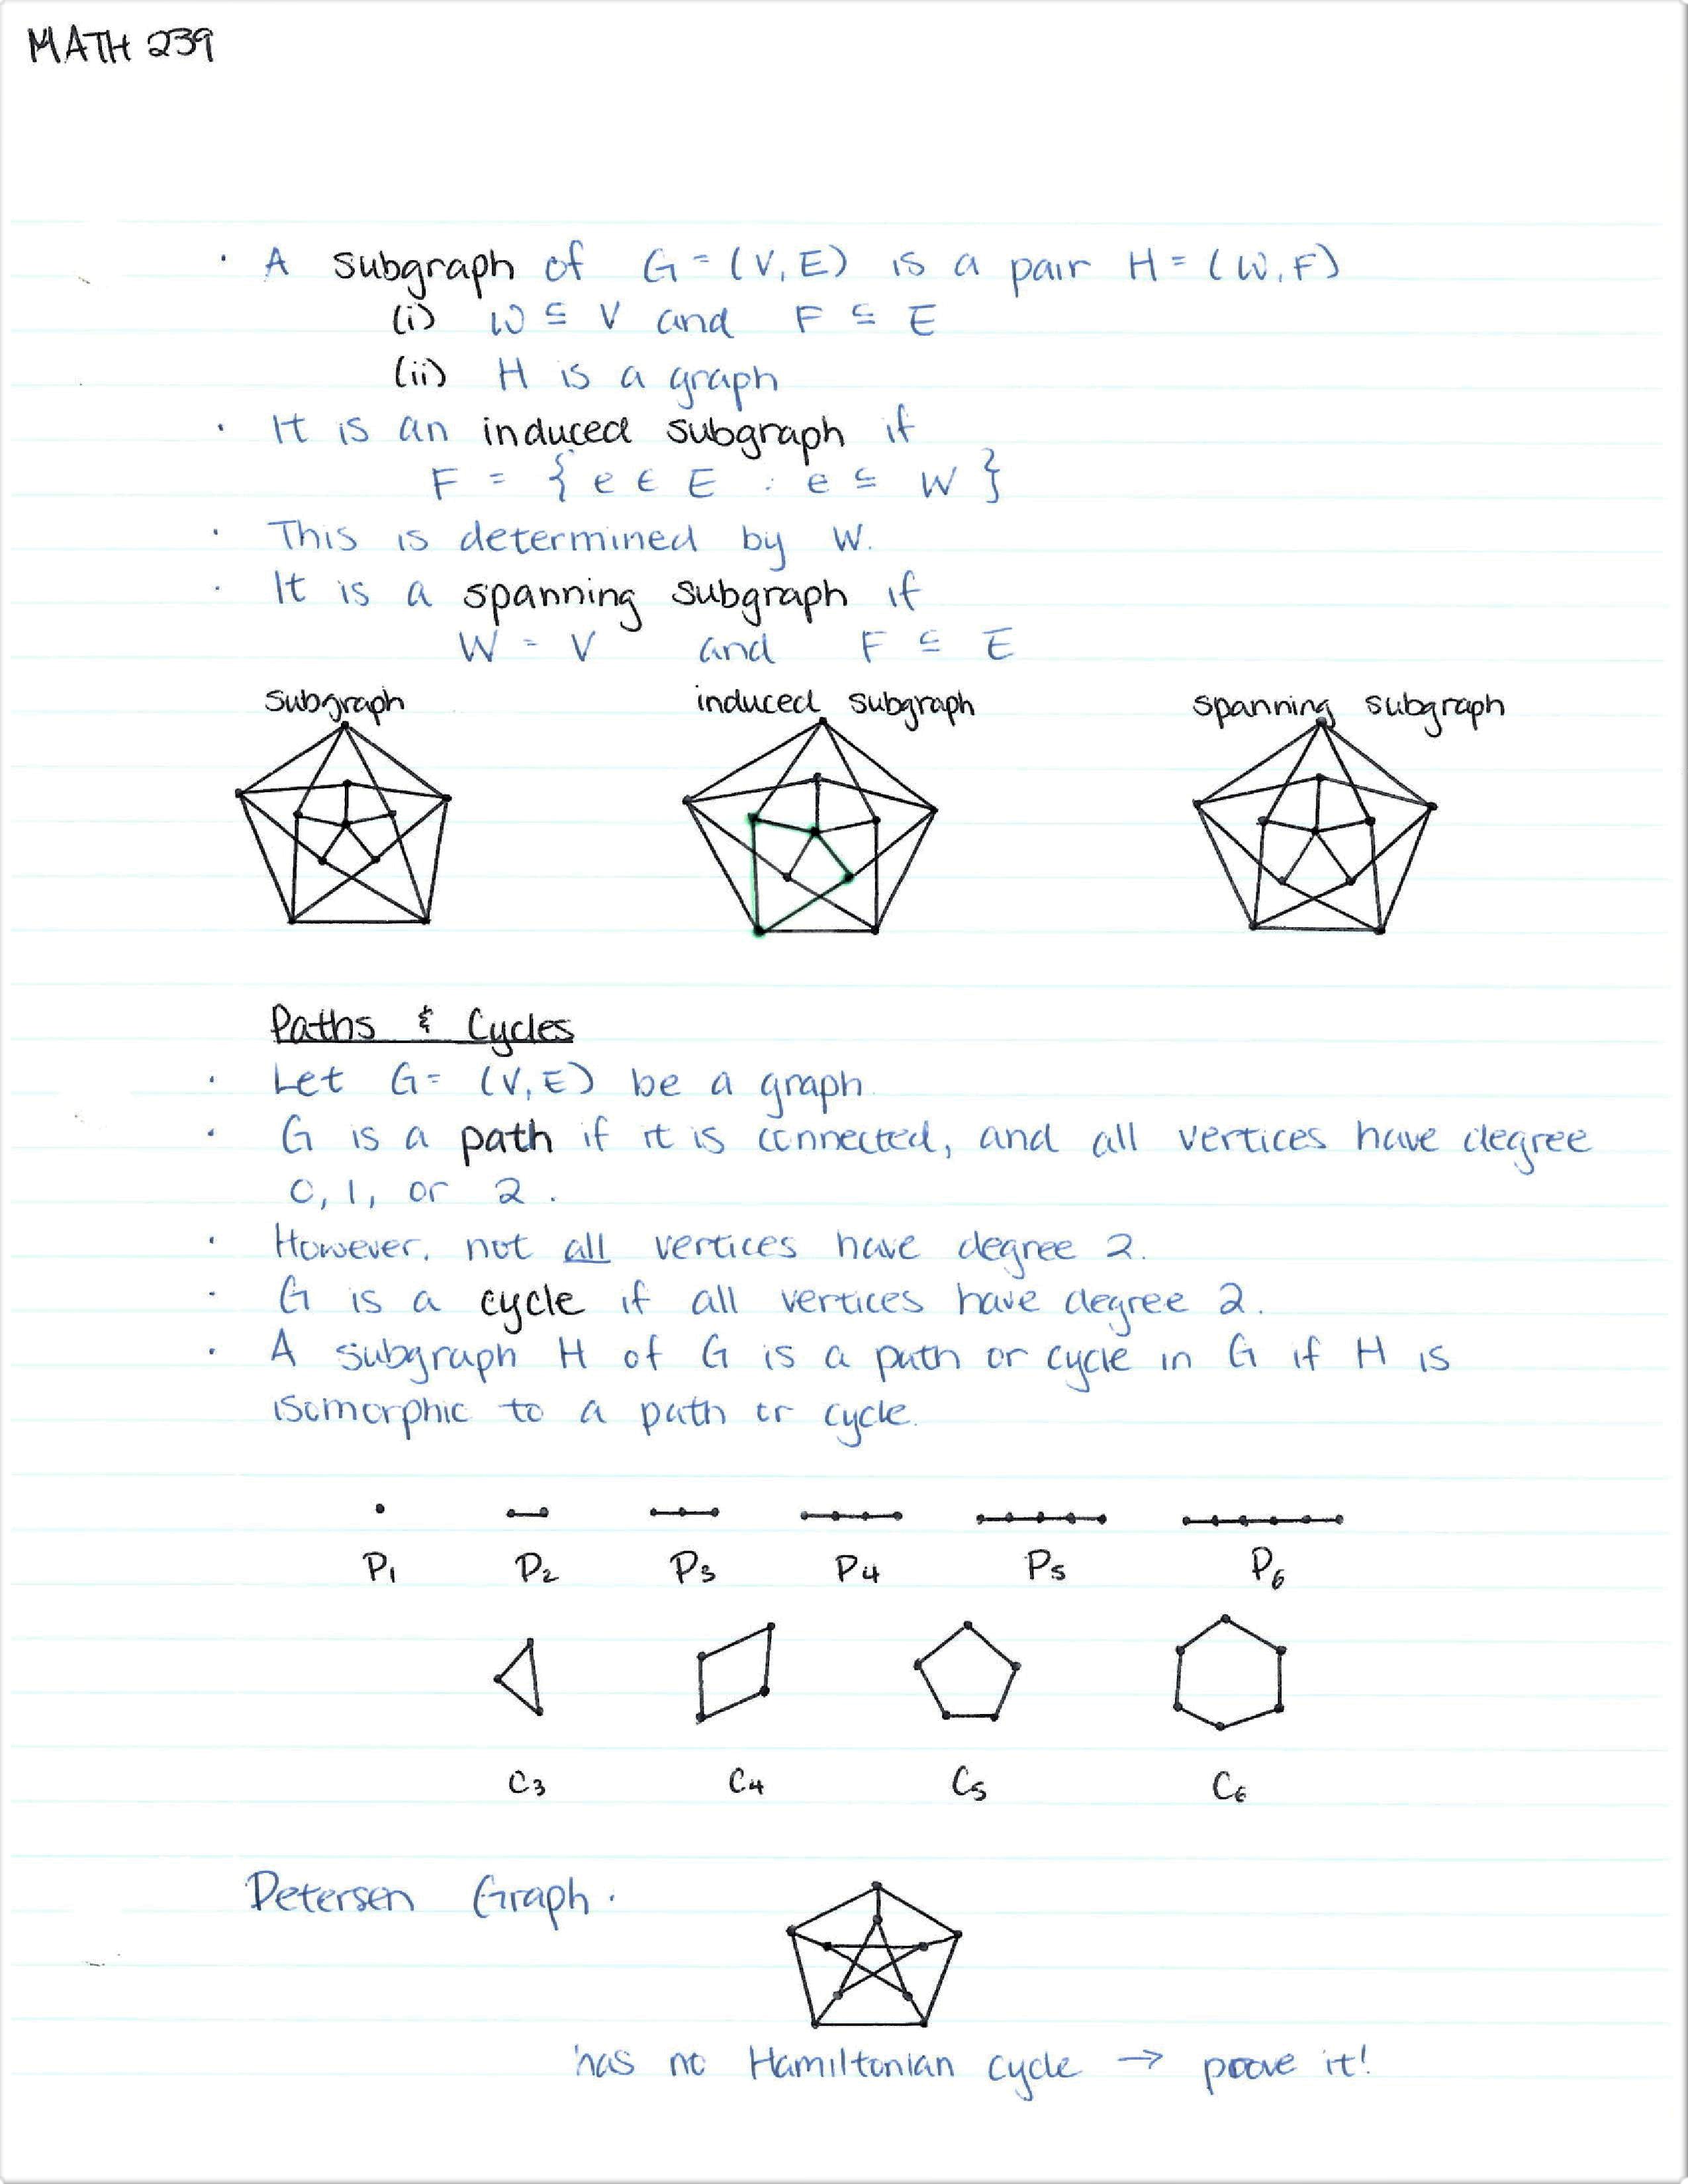 MATH 239
· A subgraph of G = (V, E) is a pair H = (W, F)
(i) W ⊆ V and F ⊆ E
(ii) H is a graph
· It is an induced subgraph if
F = { e ∈ E : e ⊆ W }
· This is determined by W.
· It is a spanning subgraph if
W = V and F ⊆ E
subgraph induced subgraph spanning subgraph
Paths & Cycles
· Let G = (V, E) be a graph.
· G is a path if it is connected, and all vertices have degree
0, 1, or 2.
· However, not all vertices have degree 2.
· G is a cycle if all vertices have degree 2.
· A subgraph H of G is a path or cycle in G if H is
isomorphic to a path or cycle.
P₁ P₂ P₃ P₄ P₅ P₆
C₃ C₄ C₅ C₆
Petersen Graph.
has no Hamiltonian cycle → prove it!